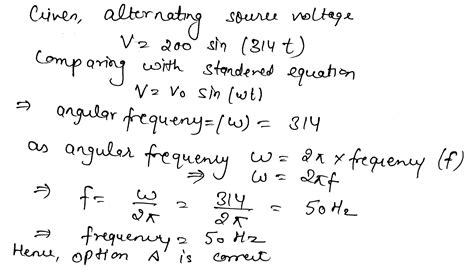 Given, alternating source voltage
V = 200 sin (314 t)
Comparing with standered equation
V = V₀ sin (ωt)
⇒ angular frequency = (ω) = 314
as angular frequency ω = 2π × freqiency (f)
⇒ ω = 2πf
⇒ f = ω/2π = 314/2π = 50 Hz
⇒ frequency = 50 Hz
Hence, option A is correct